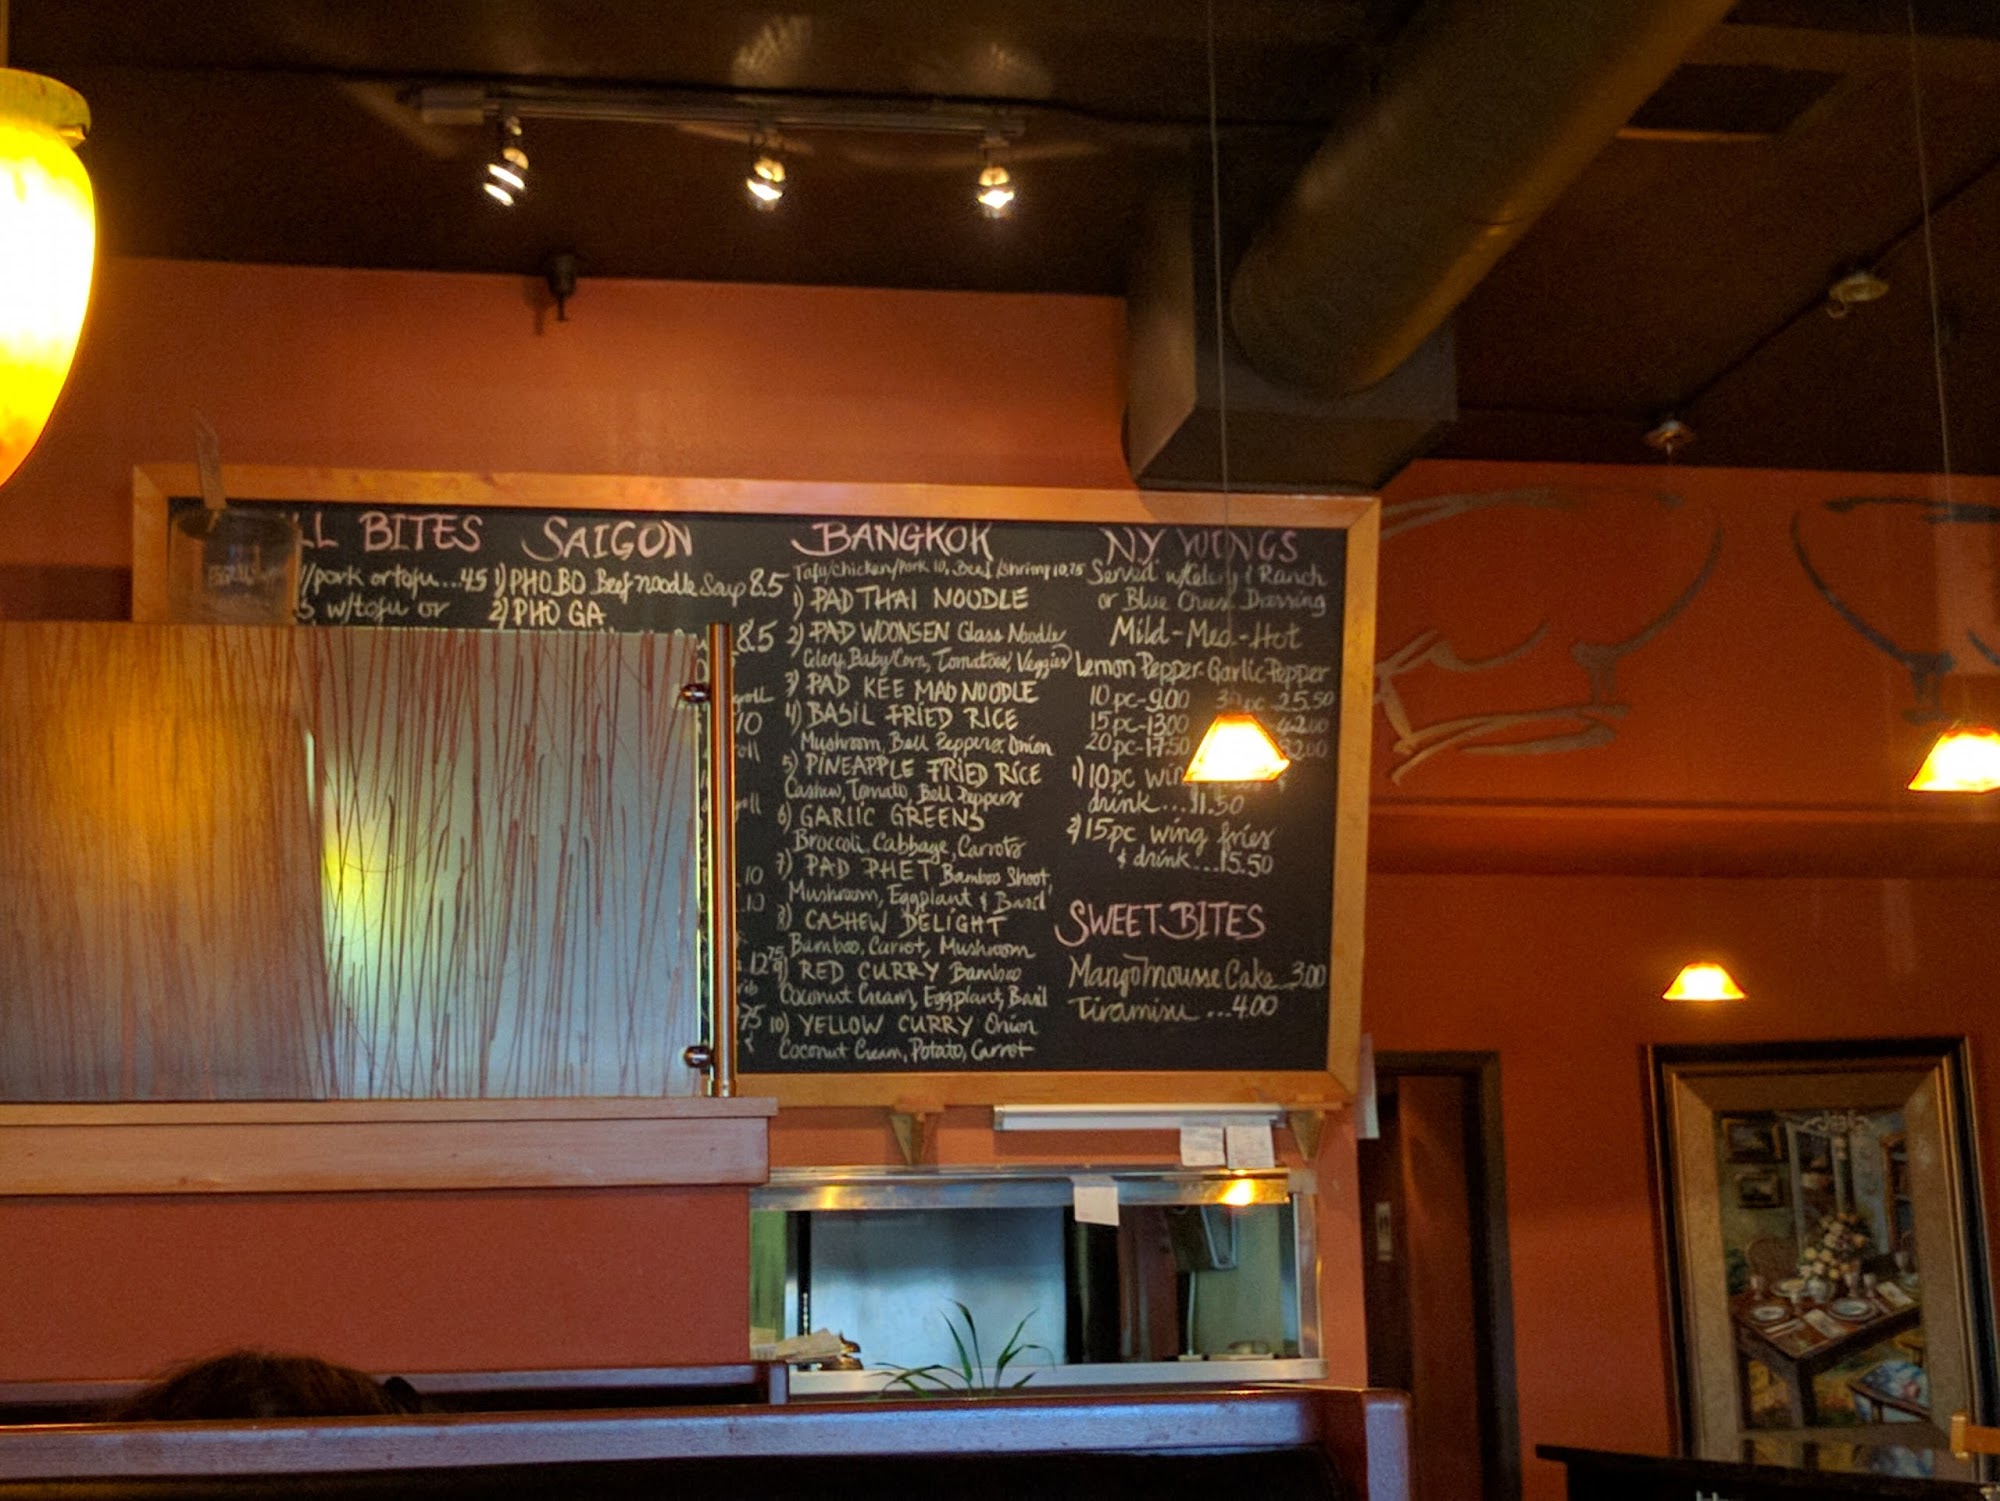 LL BITES
/pork or tofu...4.5
w/tofu or
SAIGON
1) PHO BO Beef noodle Soup 8.5
2) PHO GA
8.5
roll
10
roll
roll
.10
.10
12.75
75
BANGKOK
Tofu/Chicken/Pork 10, Beef/shrimp 10.75
1) PAD THAI NOODLE
2) PAD WOONSEN Glass Noodle
Celery, Baby Corn, Tomatoes, Veggies
3) PAD KEE MAO NOODLE
4) BASIL FRIED RICE
Mushroom, Bell Peppers, Onion
5) PINEAPPLE FRIED RICE
Cashew, Tomato, Bell Peppers
6) GARLIC GREENS
Broccoli, Cabbage, Carrots
7) PAD PHET Bamboo Shoot,
Mushroom, Eggplant & Basil
8) CASHEW DELIGHT
Bamboo, Carrot, Mushroom
9) RED CURRY Bamboo
Coconut Cream, Eggplant, Basil
10) YELLOW CURRY Onion
Coconut Cream, Potato, Carrot
NY WINGS
Served w/Celery & Ranch
or Blue Cheese Dressing
Mild-Med-Hot
Lemon Pepper-Garlic Pepper
10 pc-9.00 30 pc-25.50
15 pc-13.00 42.00
20 pc-17.50 82.00
1) 10 pc win
drink...11.50
2) 15 pc wing fries
& drink...15.50
SWEET BITES
Mango mousse Cake 3.00
Tiramisu ...4.00